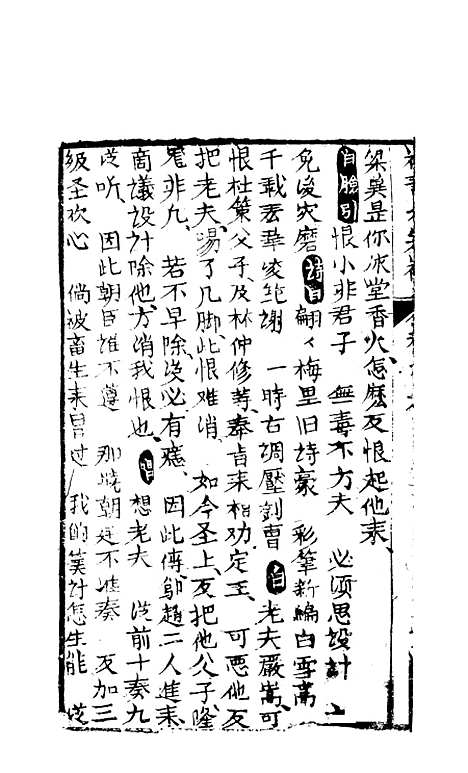 梁冀是你冰堂香火怎麽反恨起他来
白臉引 恨小非君子 無毒不丈夫 必须思設計 上
免後灾磨 詩白 翩々梅里旧詩豪 彩筆新編白雪髙
千載丟華凌 謝 一時古調壓 曹 白 老夫嚴嵩可
恨杜策父子及林仲修等奉旨来 劝定王 可悪他反
把老夫踢了几脚此恨难消 如今圣上反把他父子隆
寃非凢 若不早除後必有 因此傳鄔趙二人進来
商議設計除他方消我恨也 唱 想老夫 従前十奏九
成听 因此朝臣誰不遵 那曉朝廷不准奏 反加三
级圣欢心 倘被畜生来 过 我的算计怎生能 従